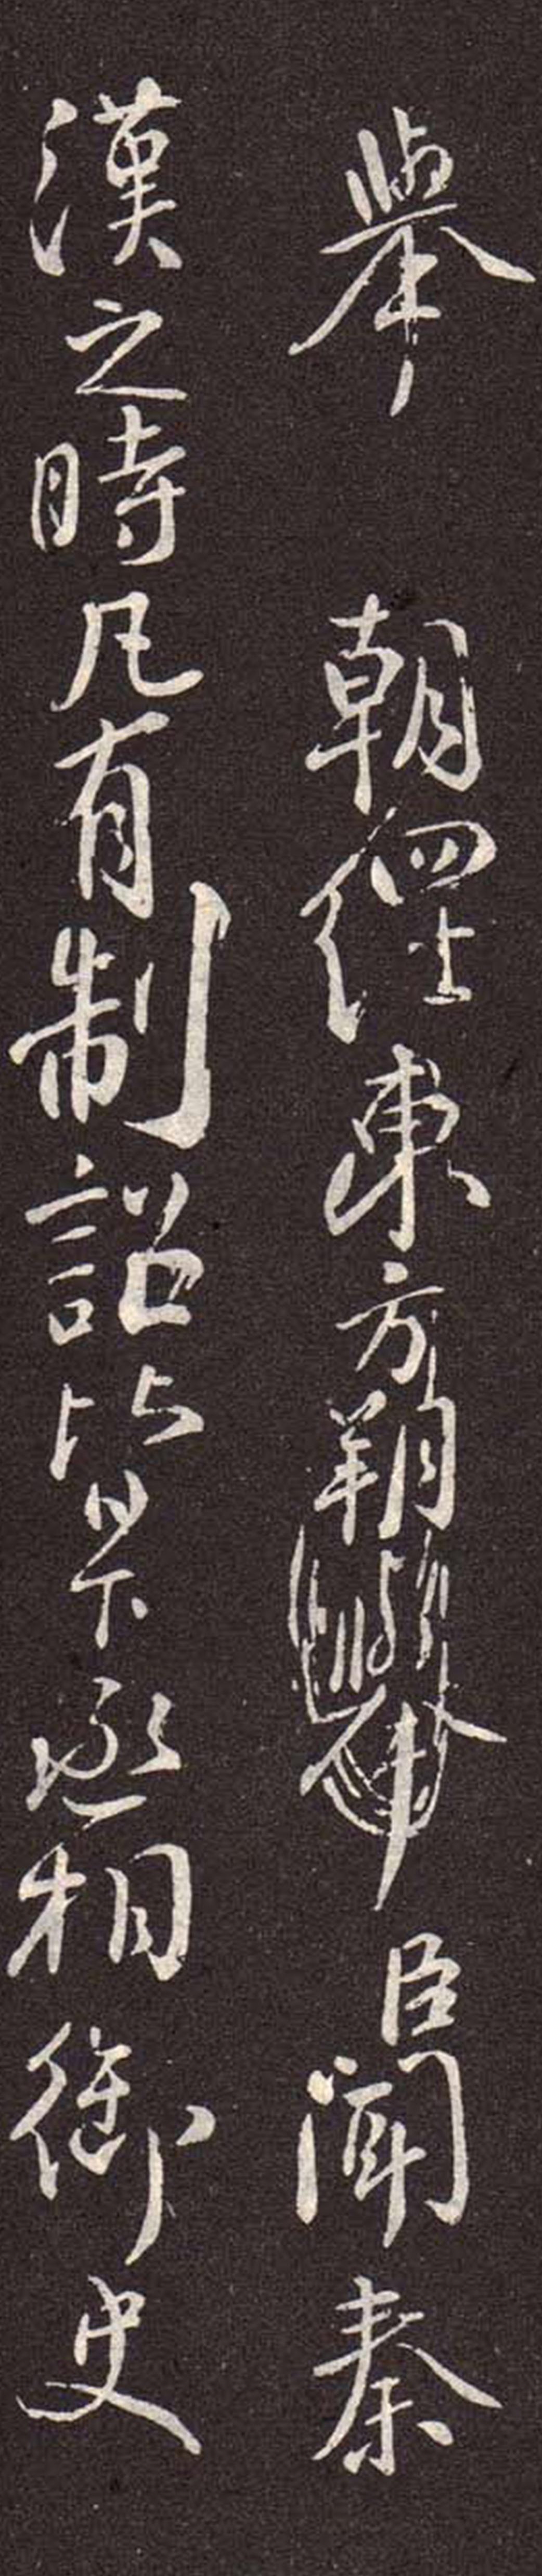 舉 朝經東方朔 臣聞秦
漢之時凡有制詔皆下丞相御史